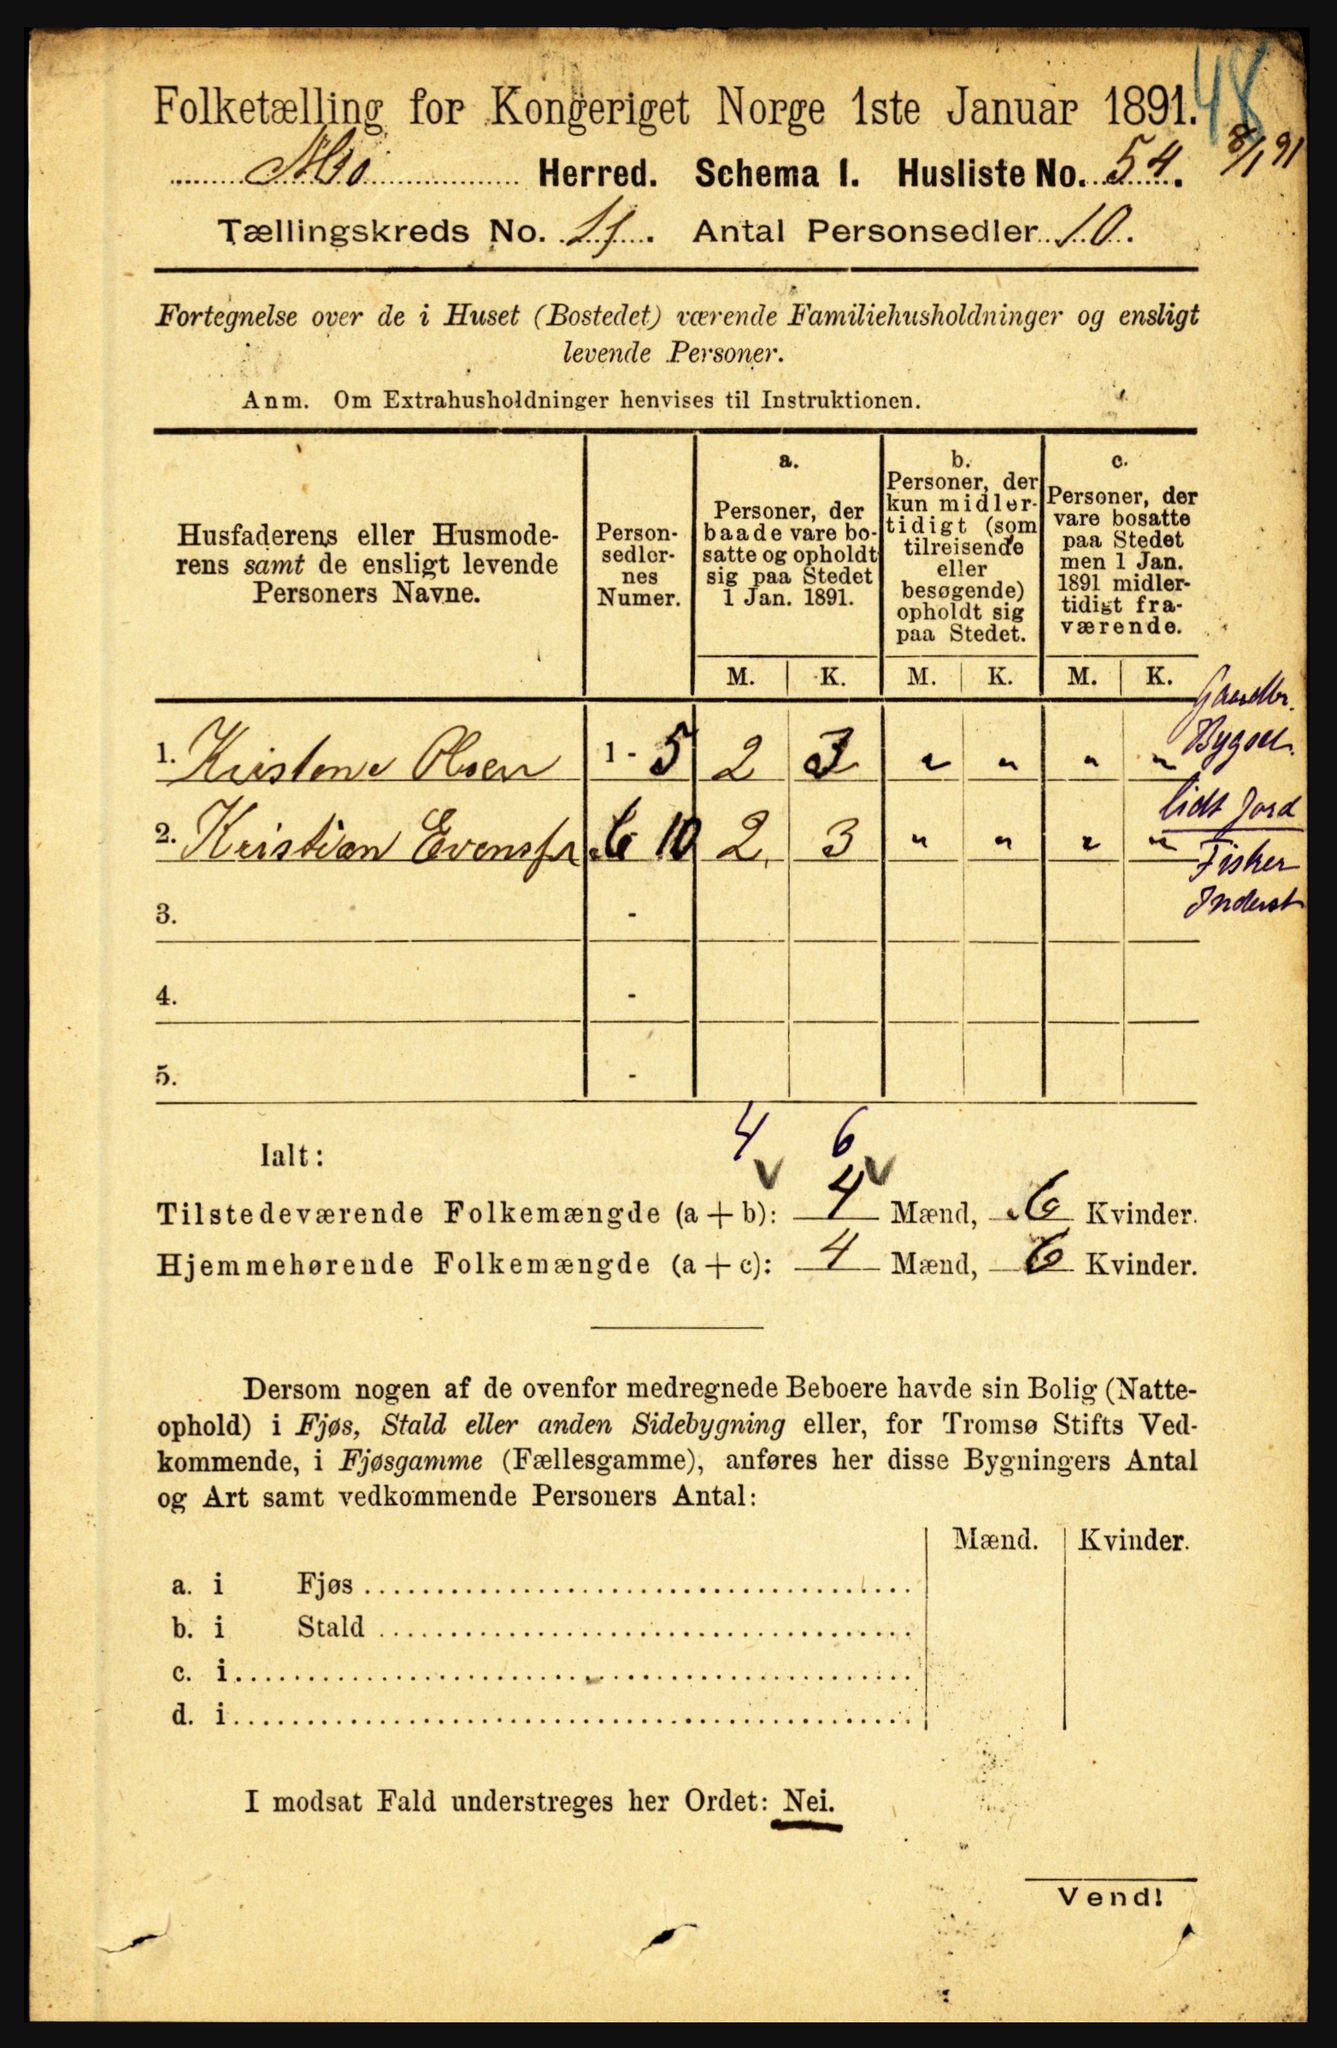 48
Folketælling for Kongeriget Norge 1ste Januar 1891.
8/1 91
Herred. Schema I. Husliste No. 54.
Tællingskreds No. 11. Antal Personsedler 10.
Fortegnelse over de i Huset (Bostedet) værende Familiehusholdninger og ensligt
levende Personer.
Anm. Om Extrahusholdninger henvises til Instruktionen.
Husfaderens eller Husmode-
rens samt de ensligt levende
Personers Navne.
Person-
sedler-
nes
Numer.
a.
Personer, der
baade vare bo-
satte og opholdt
sig paa Stedet
1 Jan. 1891.
b.
Personer, der
kun midler-
tidigt (som
tilreisende
eller
besøgende)
opholdt sig
paa Stedet.
c.
Personer, der
vare bosatte
paa Stedet
men 1 Jan.
1891 midler-
tidigt fra-
værende.
M. K. M. K. M. K.
Gaardbr.
Bygsel.
1. Kristene Olsen 1 - 5 2 3 " " " "
Lidt Jord
2. Kristian Evensen 6 10 2 3 " " " "
Fisker
Inderst
3. -
4. -
5. -
4 6
Ialt:
Tilstedeværende Folkemængde (a + b): 4 Mænd, 6 Kvinder.
Hjemmehørende Folkemængde (a + c): 4 Mænd, 6 Kvinder.
Dersom nogen af de ovenfor medregnede Beboere havde sin Bolig (Natte-
ophold) i Fjøs, Stald eller anden Sidebygning eller, for Tromsø Stifts Ved-
kommende, i Fjøsgamme (Fællesgamme), anføres her disse Bygningers Antal
og Art samt vedkommende Personers Antal:
Mænd. Kvinder.
a. i Fjøs
b. i Stald
c. i
d. i
I modsat Fald understreges her Ordet: Nei.
Vend!